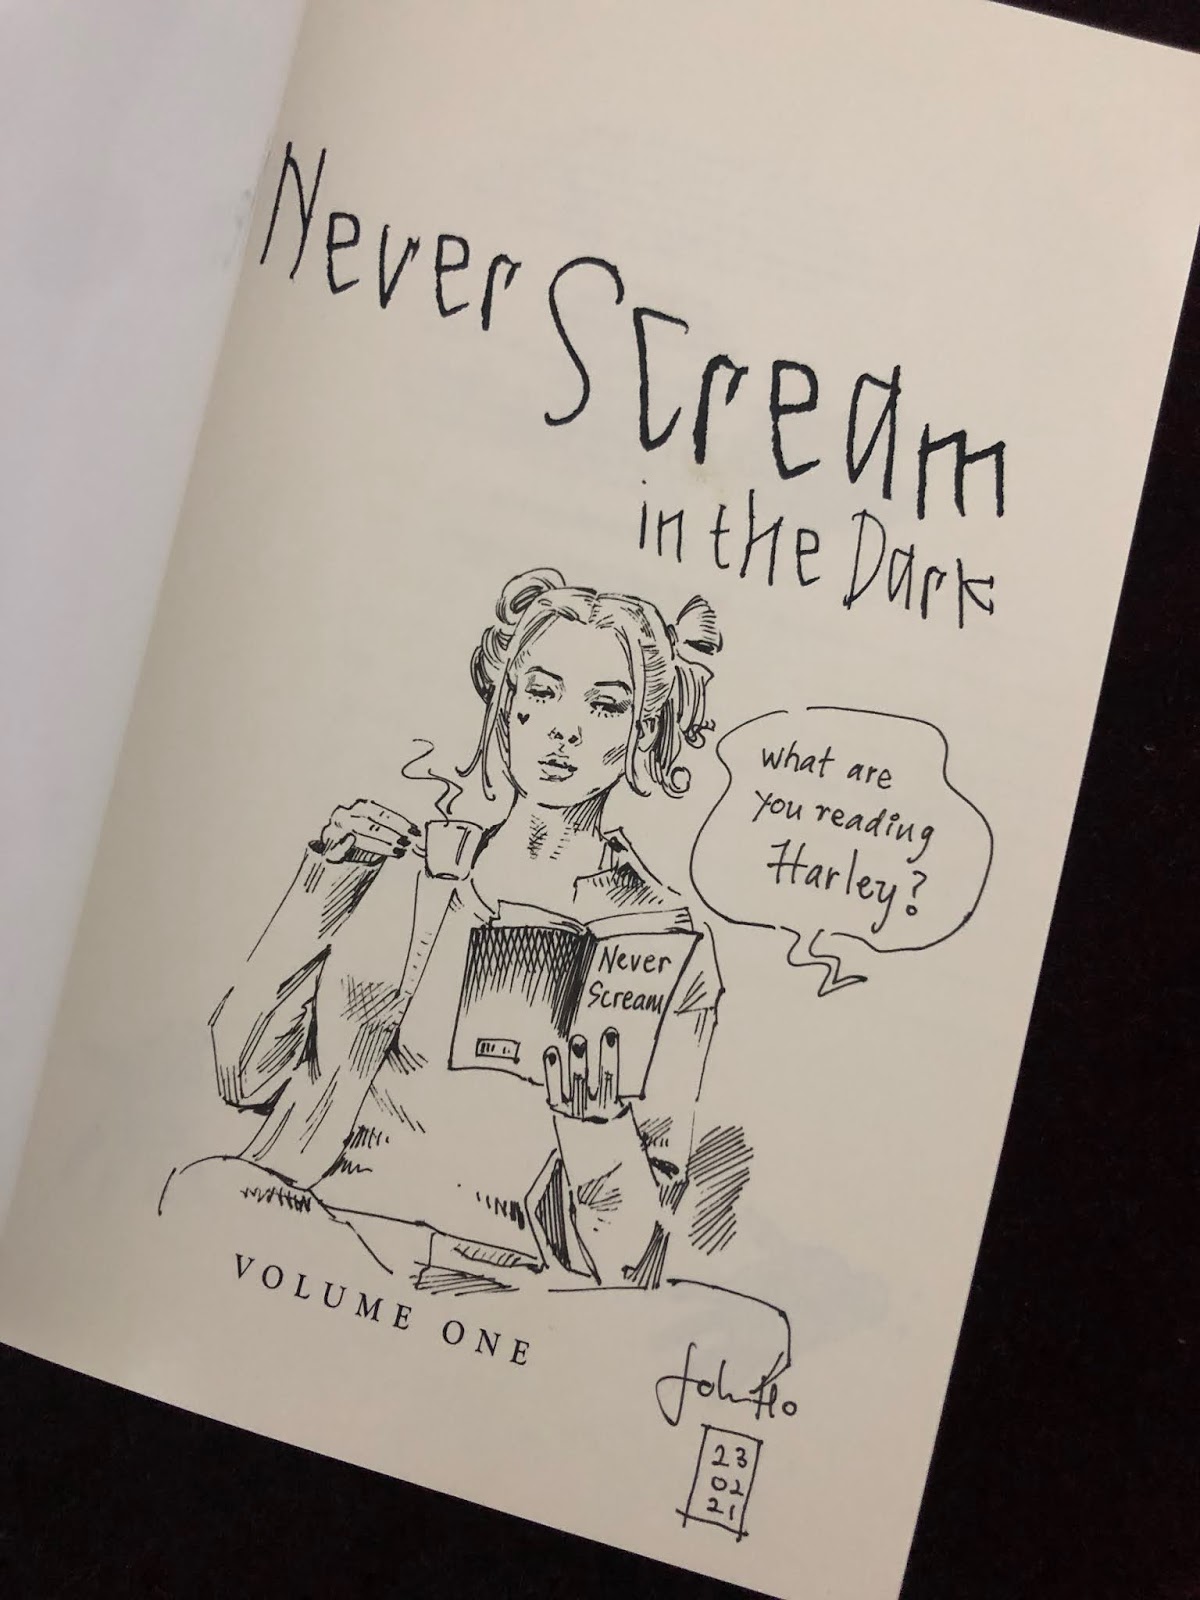 Never
Scream
in the Dark
what are
you reading
Harley?
Never
Scream
VOLUME ONE
John Ho
23
02
21